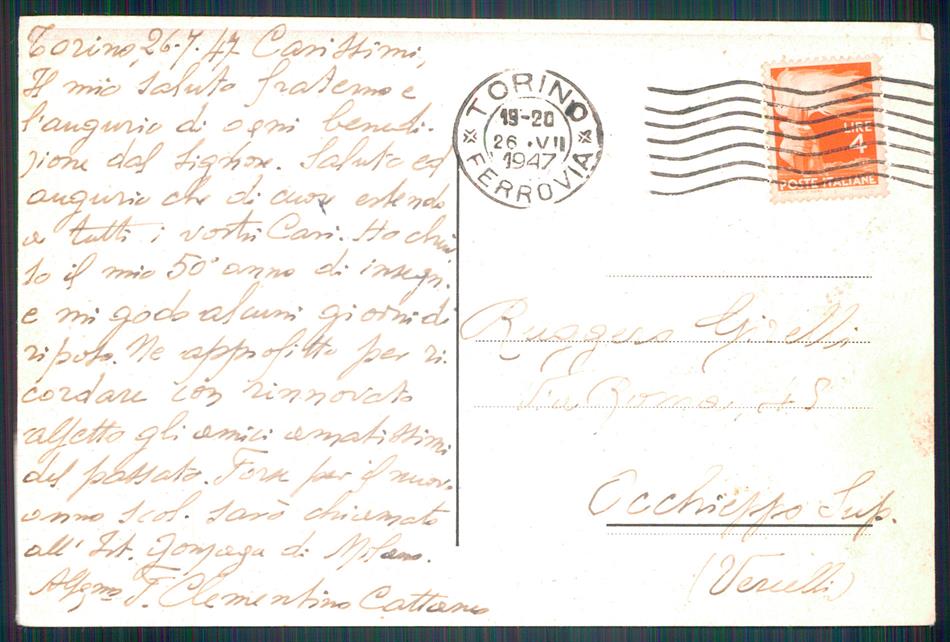 Torino, 26-7-47 Carissimi,
Il mio saluto fraterno e
l'augurio di ogni benedi-
zione dal Signore. Saluto ed
augurio che di cuore estendo
a tutti i vostri Cari. Ho chiu
so il mio 50° anno di insegn.
e mi godo alcuni giorni di
riposo. Ne approfitto per ri-
cordare con rinnovato
affetto gli amici amatissimi
del passato. Forse per il nuovo
anno scol. sarò chiamato
all' Ist. Gonzaga di Milano.
Affgmo F. Clementino Cattaneo
TORINO
FERROVIA
19-20
26 . VII
1947
LIRE
4
POSTE ITALIANE
Ruggero Girelli
Via Roma, 45
Occhieppo Sup.
(Vercelli)